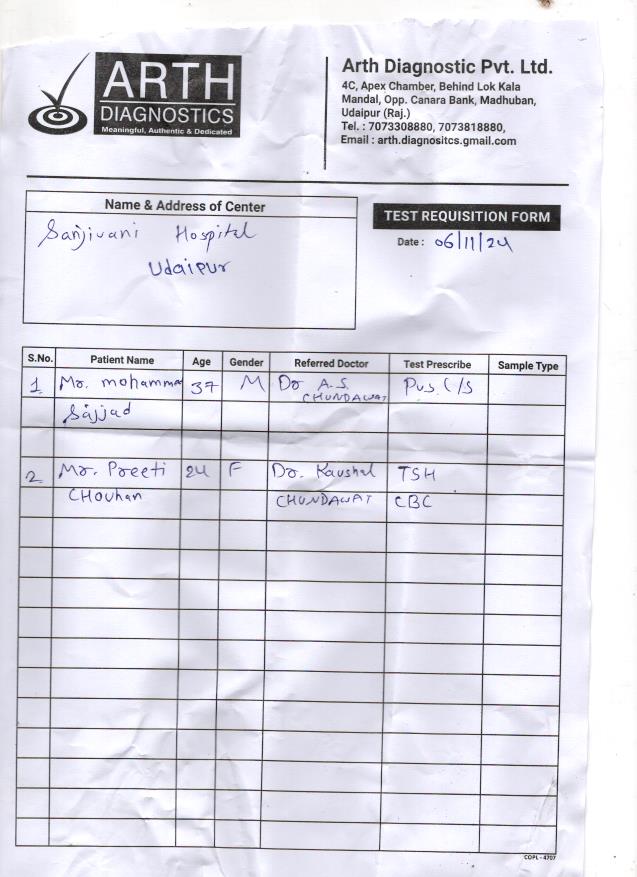 ARTH
DIAGNOSTICS
Meaningful, Authentic & Dedicated
Arth Diagnostic Pvt. Ltd.
4C, Apex Chamber, Behind Lok Kala
Mandal, Opp. Canara Bank, Madhuban,
Udaipur (Raj.)
Tel. : 7073308880, 7073818880,
Email : arth.diagnositcs.gmail.com
Name & Address of Center
Sanjivani Hospital
Udaipur
TEST REQUISITION FORM
Date : 06/11/24
S.No. Patient Name Age Gender Referred Doctor Test Prescribe Sample Type
1 Mr. mohammad 37 M Dr A.S. Pus C/S
CHUNDAWAT
Sajjad
2 Mr. Preeti 24 F Dr. Kaushal TSH
CHOUhan CHUNDAWAT CBC
COPL - 4707